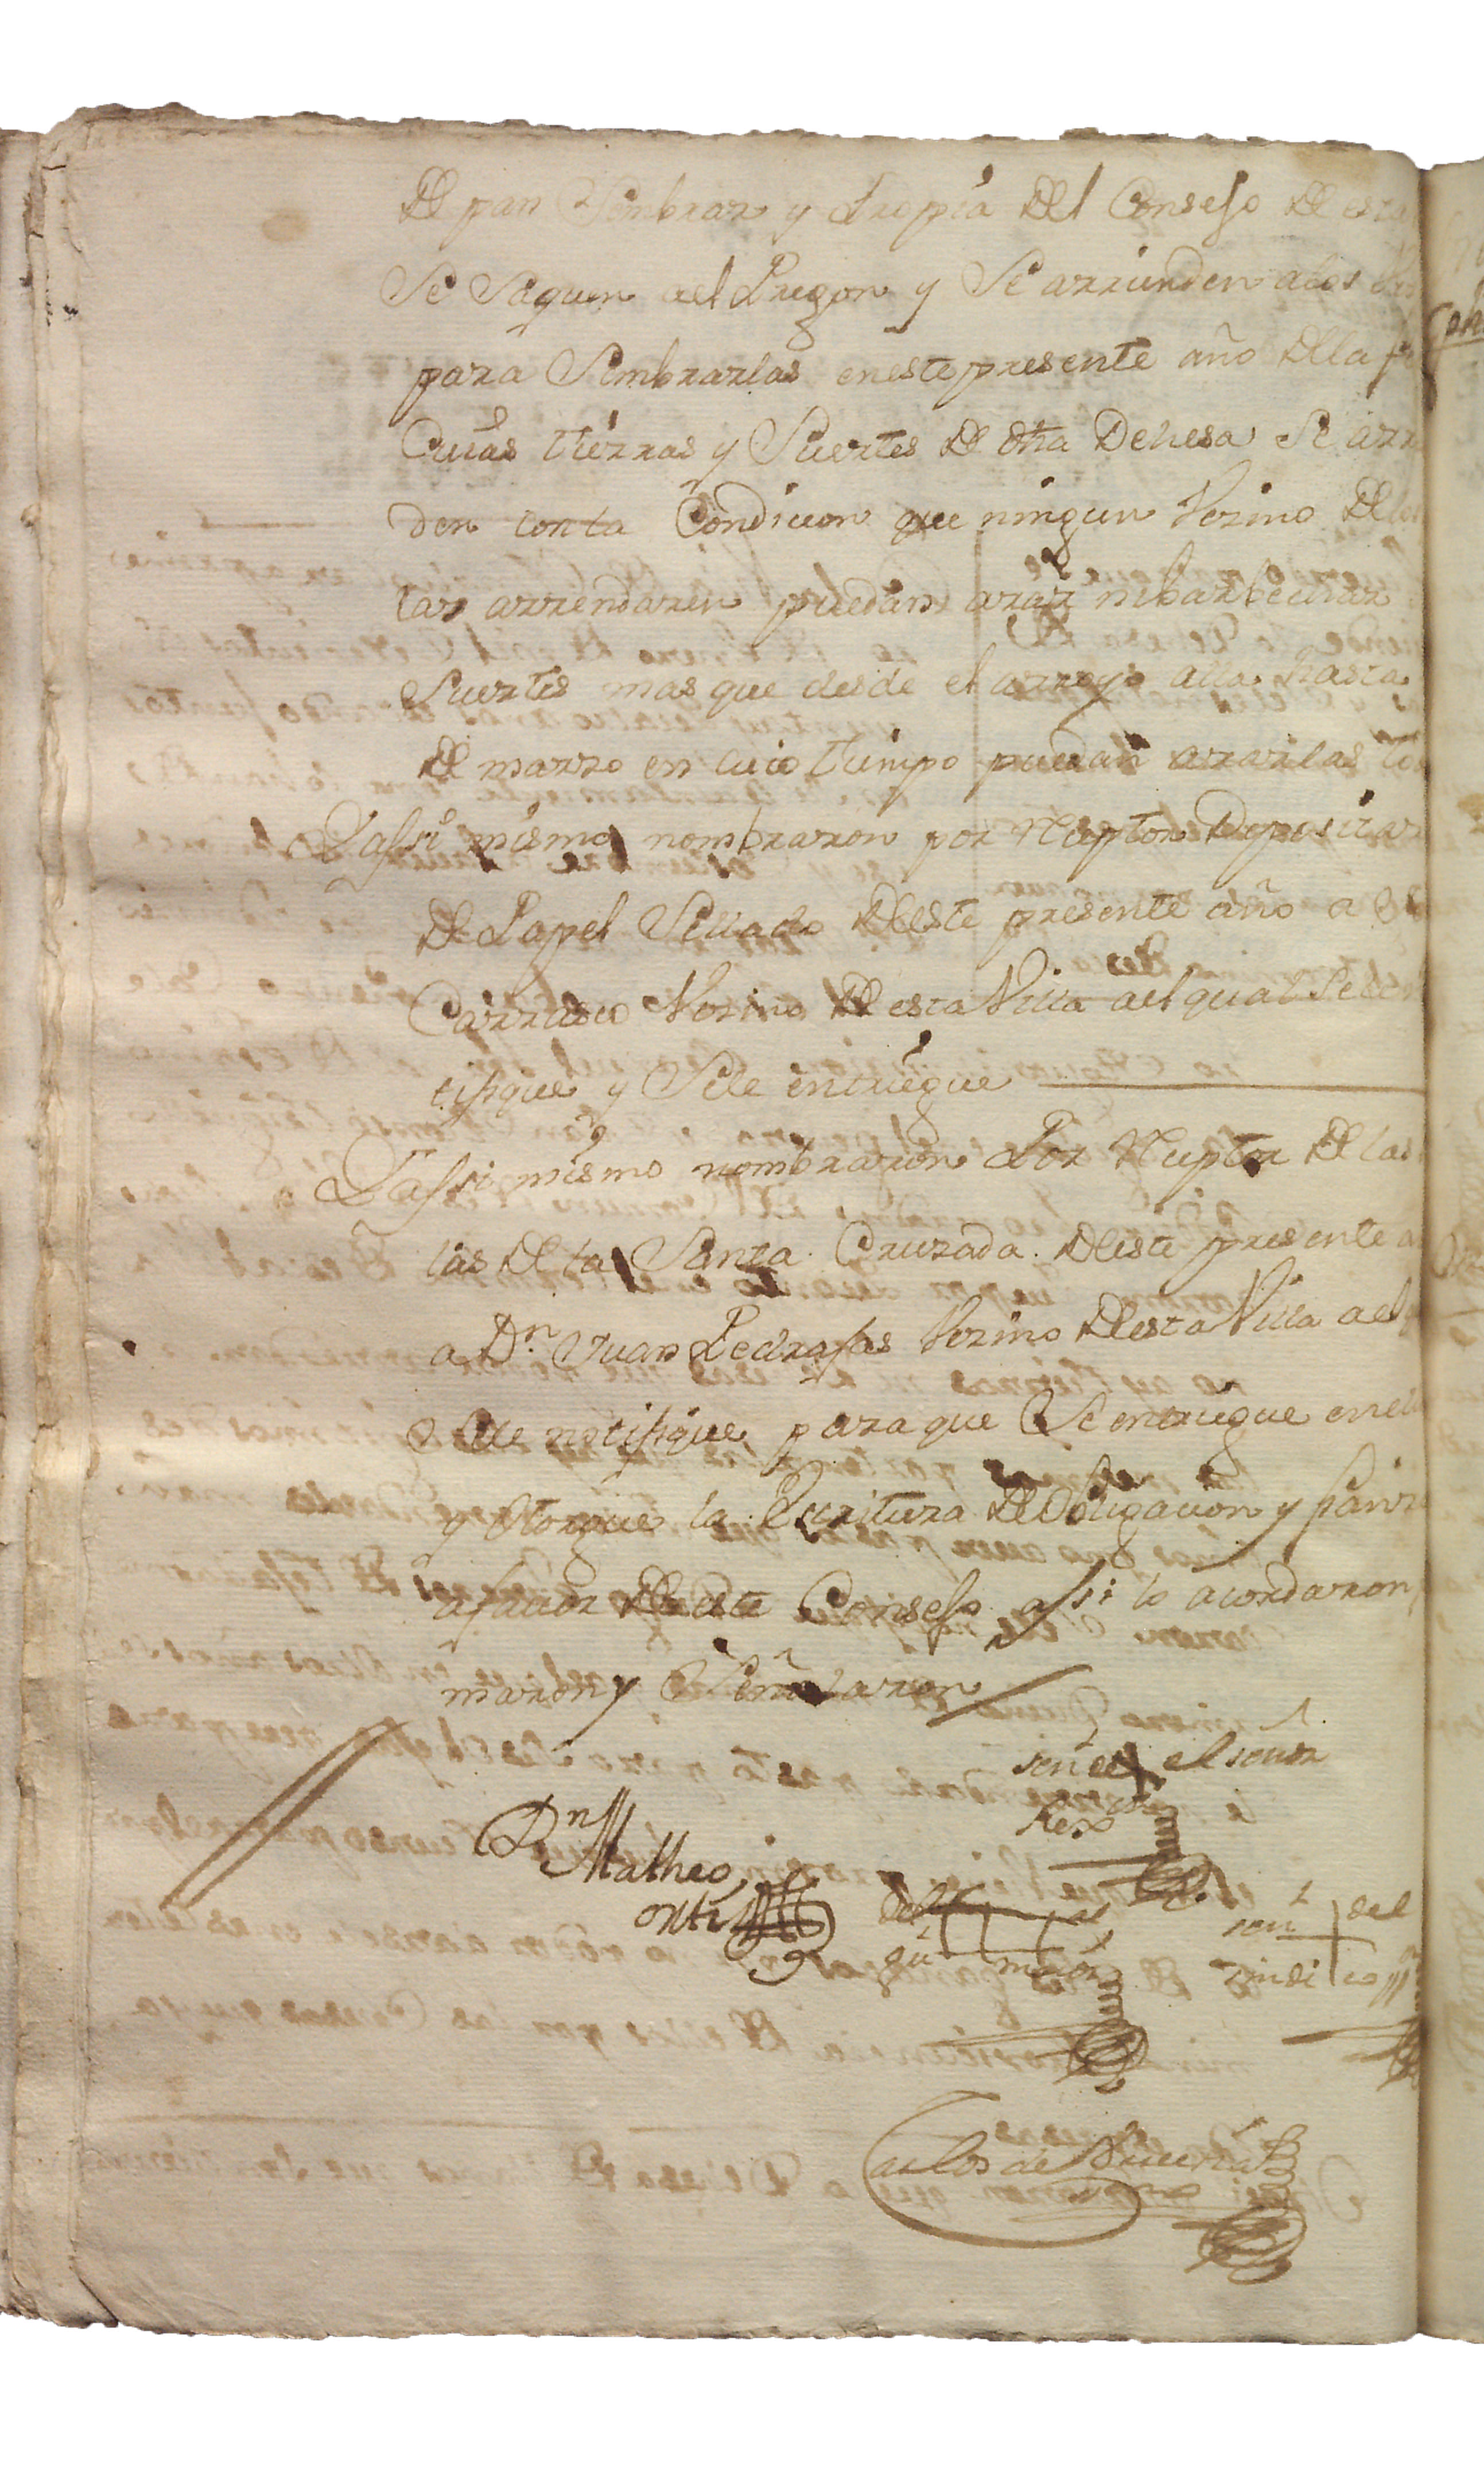 De pan Sembrar y Propia Del Consejo De esta
Se Saquen ael Pregon y Se arrienden alos
para Sembrarlas eneste presente año Dela
Cuias tierras y Suertes De dha Dehesa Se arr
den conla Condicion que ningun Vezino Delos
las arrendaren puedan arar nibarbechar
Suertes mas que desde el arroyo alla hasta
De marzo en cuio tiempo puedan ararlas to
Yassi mismo nombraron por Rezeptor Depositar
De Papel Sellado Deeste presente año a
Carrasco Vezino De esta Villa ael qual Sele
tifique y Sele entregue
Yassi mismo nombraron Por Rezeptor De las
las Dela Santa Cruzada Deeste presente a
a Dn Juan Pedrajas Vezino Deesta Villa ael
Sele notifique para que Se entregue en el
y Otorgue la Escritura De Obligacion y fianz
afauor De este Consejo assi lo acordaron
maron y Señalaron
señal el señor
Rexor
Dn Matheo
ortiz
del al
gu maior
señl del
sindico
Carlos de